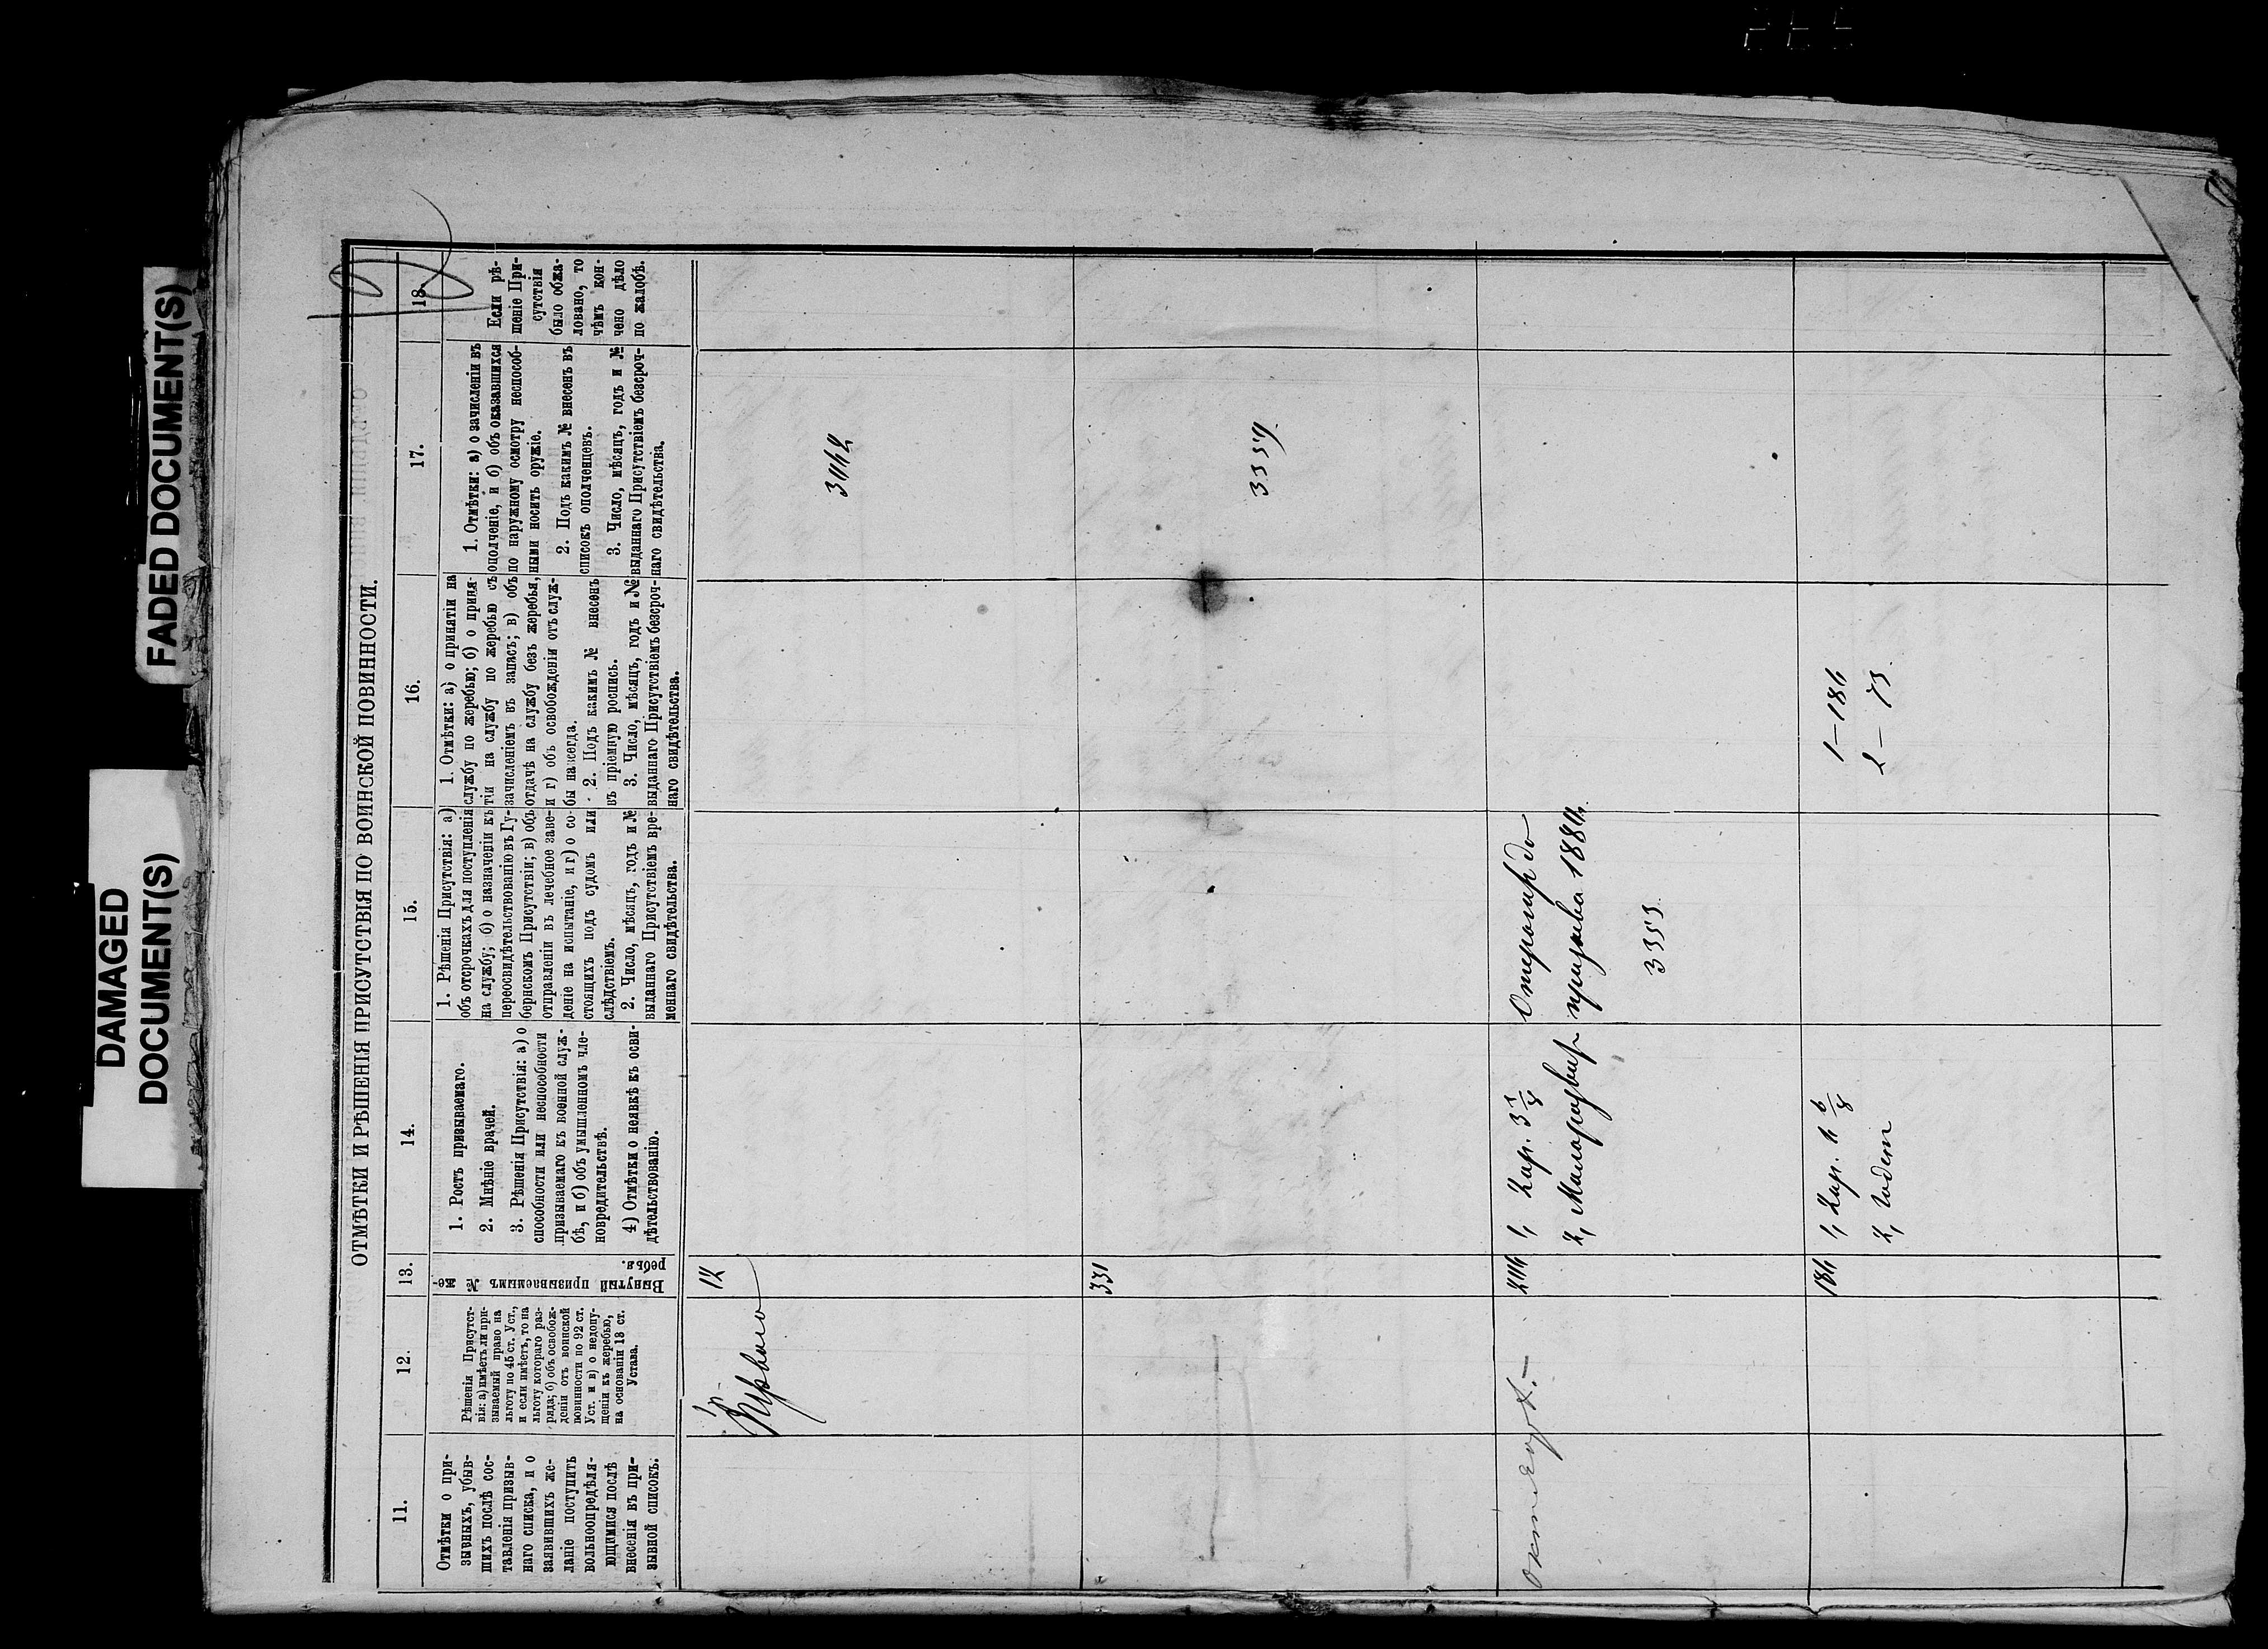 FADED DOCUMENT(S)
DAMAGED
DOCUMENT(S)
ОТМѢТКИ И РѢШЕНІЯ ПРИСУТСТВІЯ ПО ВОИНСКОЙ ПОВИННОСТИ.
11.
12.
13.
14.
15.
16.
17.
18.
Отмѣтки о при-
зывныхъ, убыв-
шихъ послѣ сос-
тавленія призыв-
наго списка, и о
заявившихъ же-
ланіе поступить
вольноопредѣля-
ющимися послѣ
внесенія въ при-
зывной списокъ.
Рѣшенія Присутст-
вія: а) имѣетъ ли при-
зываемый право на
льготу по 45 ст. Уст.,
и если имѣетъ, то на
льготу котораго раз-
ряда; б) объ освобож-
деніи отъ воинской
повинности по 92 ст.
Уст. и в) о недопу-
щеніи къ жеребью,
на основаніи 18 ст.
Устава.
Вынутый призываемымъ № же-
ребья.
1. Ростъ призываемаго.
2. Мнѣніе врачей.
3. Рѣшенія Присутствія: а) о
способности или неспособности
призываемаго къ военной служ-
бѣ, и б) объ умышленномъ чле-
новредительствѣ.
4) Отмѣтки о неявкѣ къ осви-
дѣтельствованію.
1. Рѣшенія Присутствія: а)
объ отсрочкахъ для поступленія
на службу; б) о назначеніи къ
переосвидѣтельствованію въ Гу-
бернскомъ Присутствіи; в) объ
отправленіи въ лечебное заве-
деніе на испытаніе, и г) о со-
стоящихъ подъ судомъ или
слѣдствіемъ.
2. Число, мѣсяцъ, годъ и №
выданнаго Присутствіемъ вре-
меннаго свидѣтельства.
1. Отмѣтки: а) о принятіи на
службу по жеребью; б) о приня-
тіи на службу по жеребью съ
зачисленіемъ въ запасъ; в) объ
отдачѣ на службу безъ жеребья,
и г) объ освобожденіи отъ служ-
бы навсегда.
2. Подъ какимъ № внесенъ
въ пріемную роспись.
3. Число, мѣсяцъ, годъ и №
выданнаго Присутствіемъ безсроч-
наго свидѣтельства.
1. Отмѣтки: а) о зачисленіи въ
ополченіе, и б) объ оказавшихся
по наружному осмотру неспособ-
ными носить оружіе.
2. Подъ какимъ № внесенъ въ
списокъ ополченцевъ.
3. Число, мѣсяцъ, годъ и №
выданнаго Присутствіемъ безсроч-
наго свидѣтельства.
Если рѣ-
шеніе При-
сутствія
было обжа-
ловано, то
чѣмъ кон-
чено дѣло
по жалобѣ.
12
331
3357.
1, 2 ар. 3 1/8
до
призыва 1884.
3353.
184
1, 2 ар. 4 6/8
2, годен
1 – 184
2 – 73.